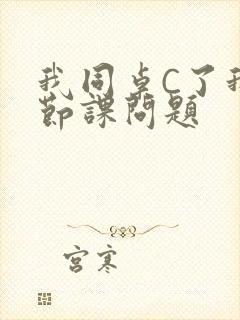 我同卓C了我
節課問題
宮寒